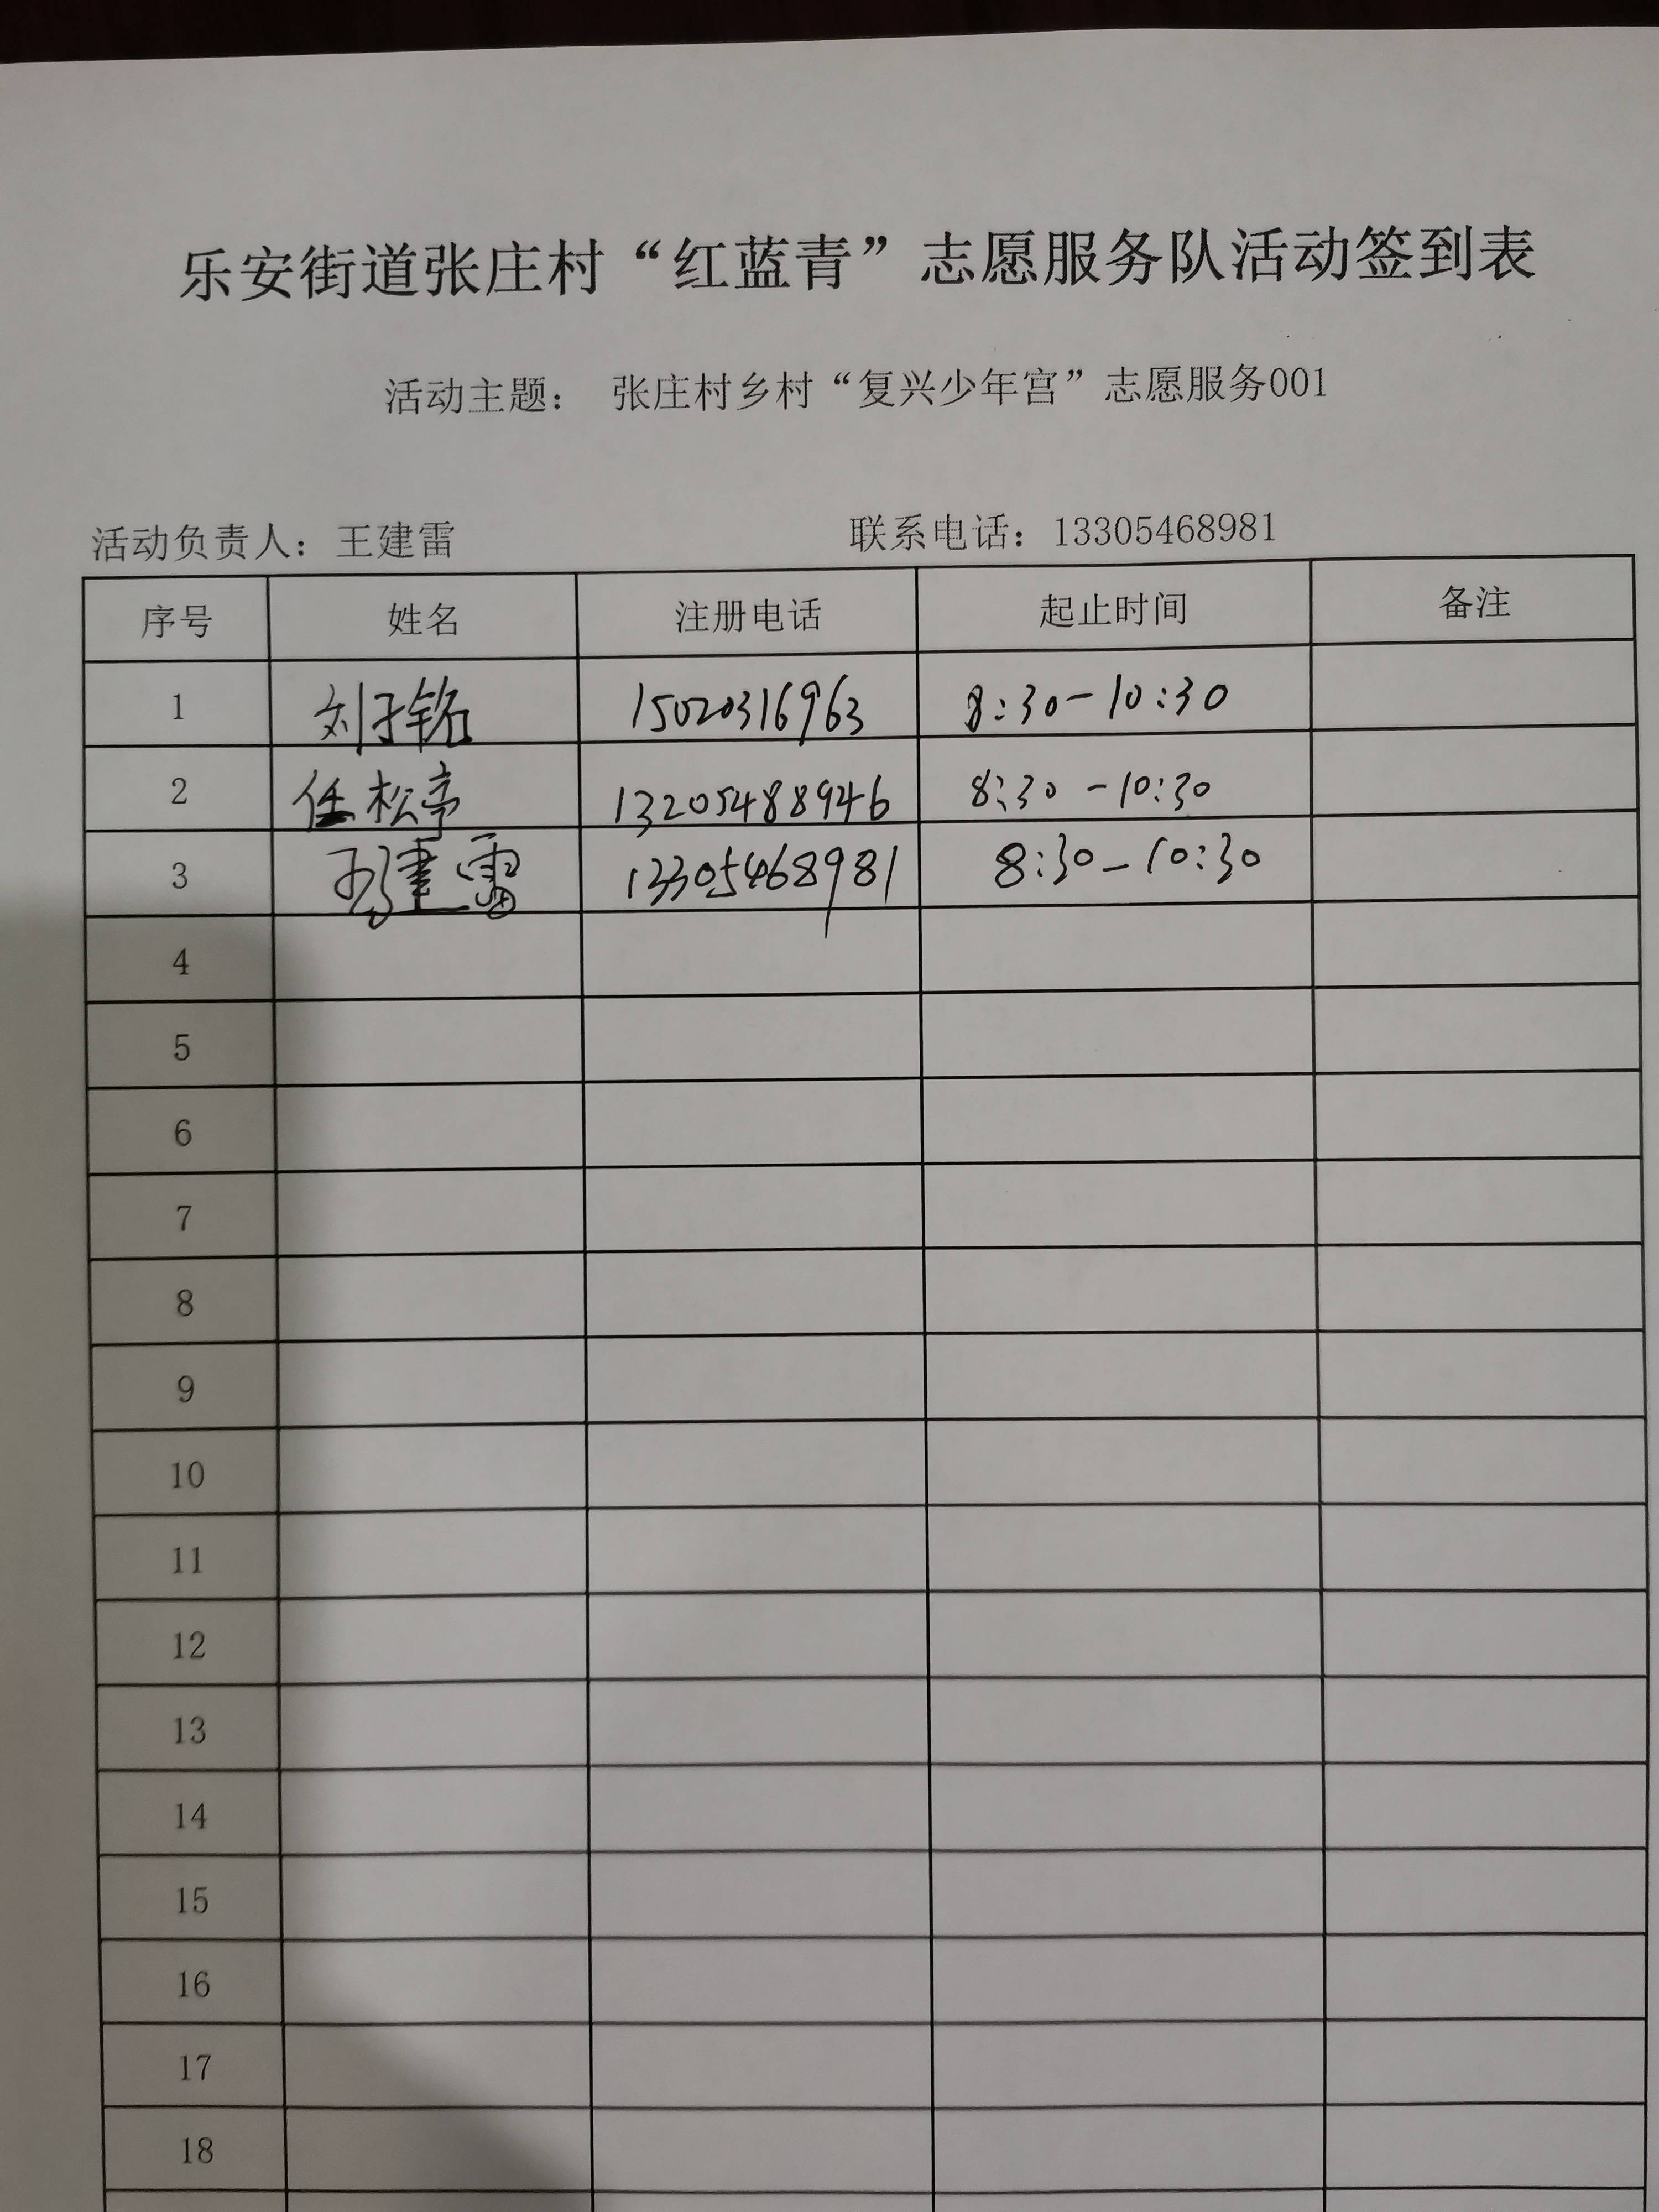 乐安街道张庄村“红蓝青”志愿服务队活动签到表
活动主题： 张庄村乡村“复兴少年宫”志愿服务001
活动负责人：王建雷 联系电话：13305468981
序号 姓名 注册电话 起止时间 备注
1 刘子铭 15020316963 8:30-10:30
2 任松亭 13205488946 8:30-10:30
3 王建雷 13305468981 8:30-10:30
4
5
6
7
8
9
10
11
12
13
14
15
16
17
18